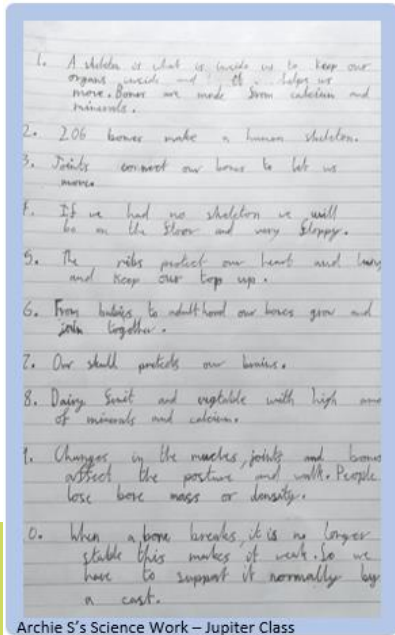 1. A skeleton is what is inside us to keep our
organs inside and it helps us
move. Bones are made from calcium and
minerals.
2. 206 bones make a human skeleton.
3. Joints connect our bones to let us
move.
4. If we had no skeleton we will
be on the floor and very floppy.
5. The ribs protect our heart and lung
and keep our top up.
6. From babies to adulthood our bones grow and
join together.
7. Our skull protects our brains.
8. Dairy fruit and vegtable with high
of minerals and calcium.
9. Changes in the muscles, joints and bones
affect the posture and walk. People
lose bone mass or density.
0. When a bone breaks, it is no longer
stable this makes it weak. So we
have to support it normally by
a cast.
Archie S's Science Work – Jupiter Class